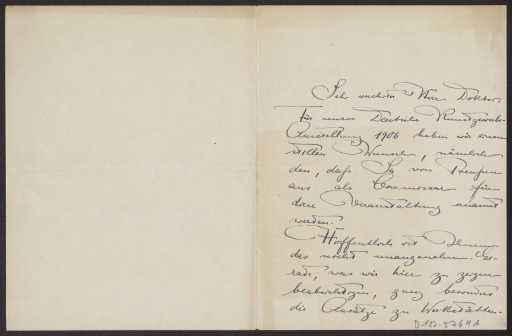 Sehr verehrter Herr Doktor.
Für unsere Deutsche Kunstgewerbe-
Ausstellung 1906 haben wir einen
stillen Wunsch, nämlich
den, daß Sie von Preußen
aus als Commissar für
diese Veranstaltung ernannt
werden.
Hoffentlich ist Ihnen
das nicht unangenehm. Ge-
rade, was wir hier zu zeigen
beabsichtigen, ganz besonders
die Ansätze zu Werkstätten-